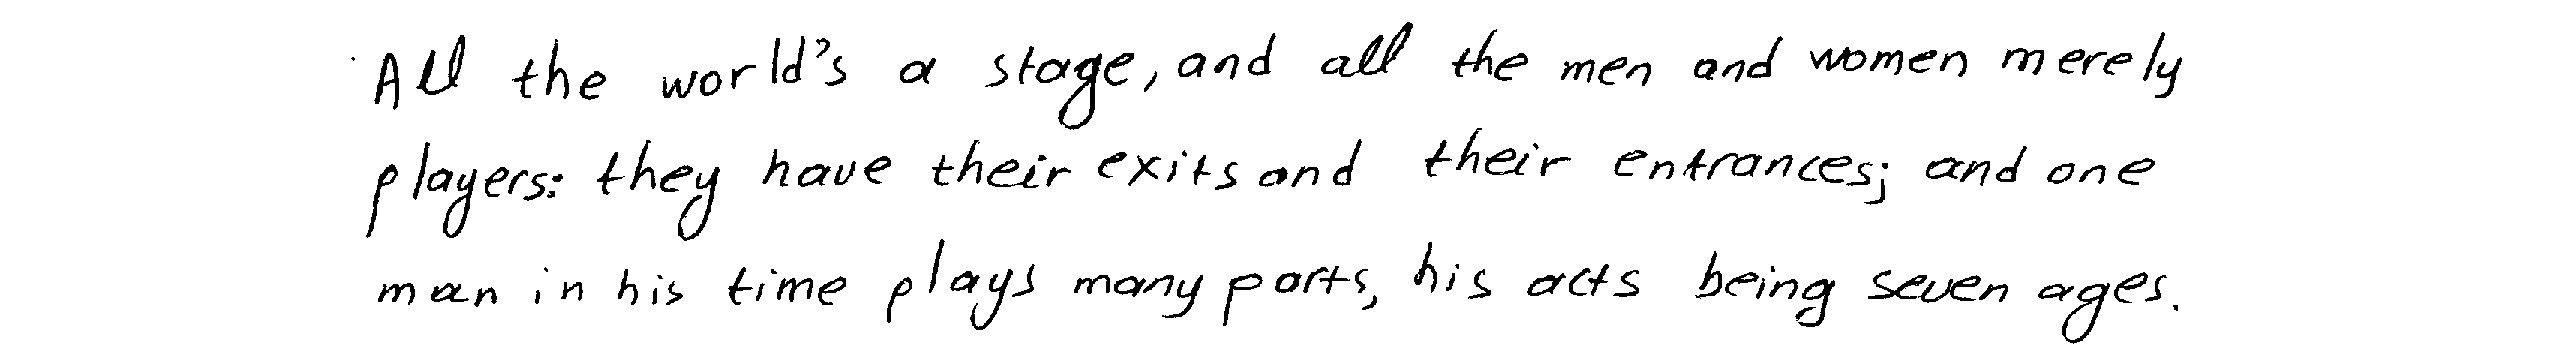 All the world's a stage, and all the men and women merely
players: they have their exits and their entrances; and one
man in his time plays many parts, his acts being seven ages.